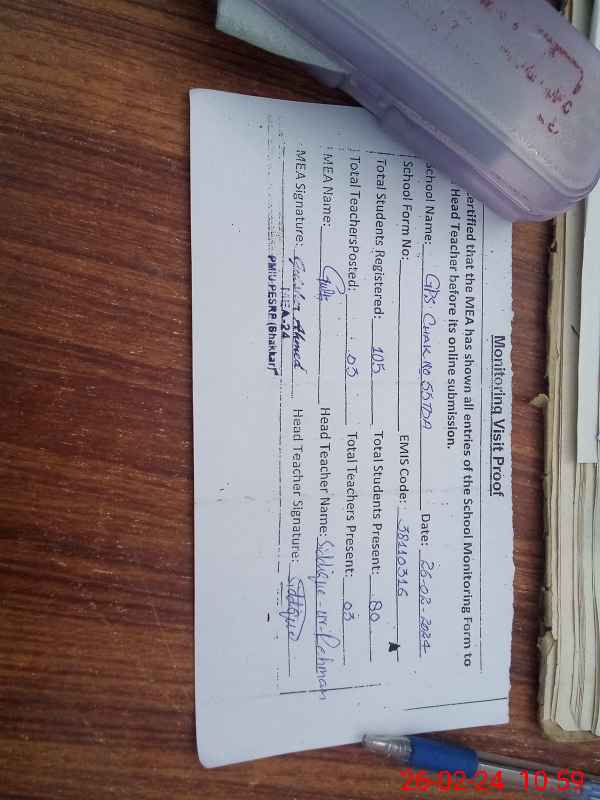 Monitoring Visit Proof
ertified that the MEA has shown all entries of the School Monitoring Form to
Head Teacher before its online submission.
School Name: GPS CHAK NO 55TDA Date: 26-02-2024
School Form No: EMIS Code: 38110316
Total Students Registered: 105 Total Students Present: 80
Total TeachersPosted: 03 Total Teachers Present: 03
MEA Name: Head Teacher Name: Siddique-ur-Rehman
MEA Signature: Ahmed Head Teacher Signature: Siddique
MEA-24
PMIU PESRP (Bhakkar)
26-02-24 10:59